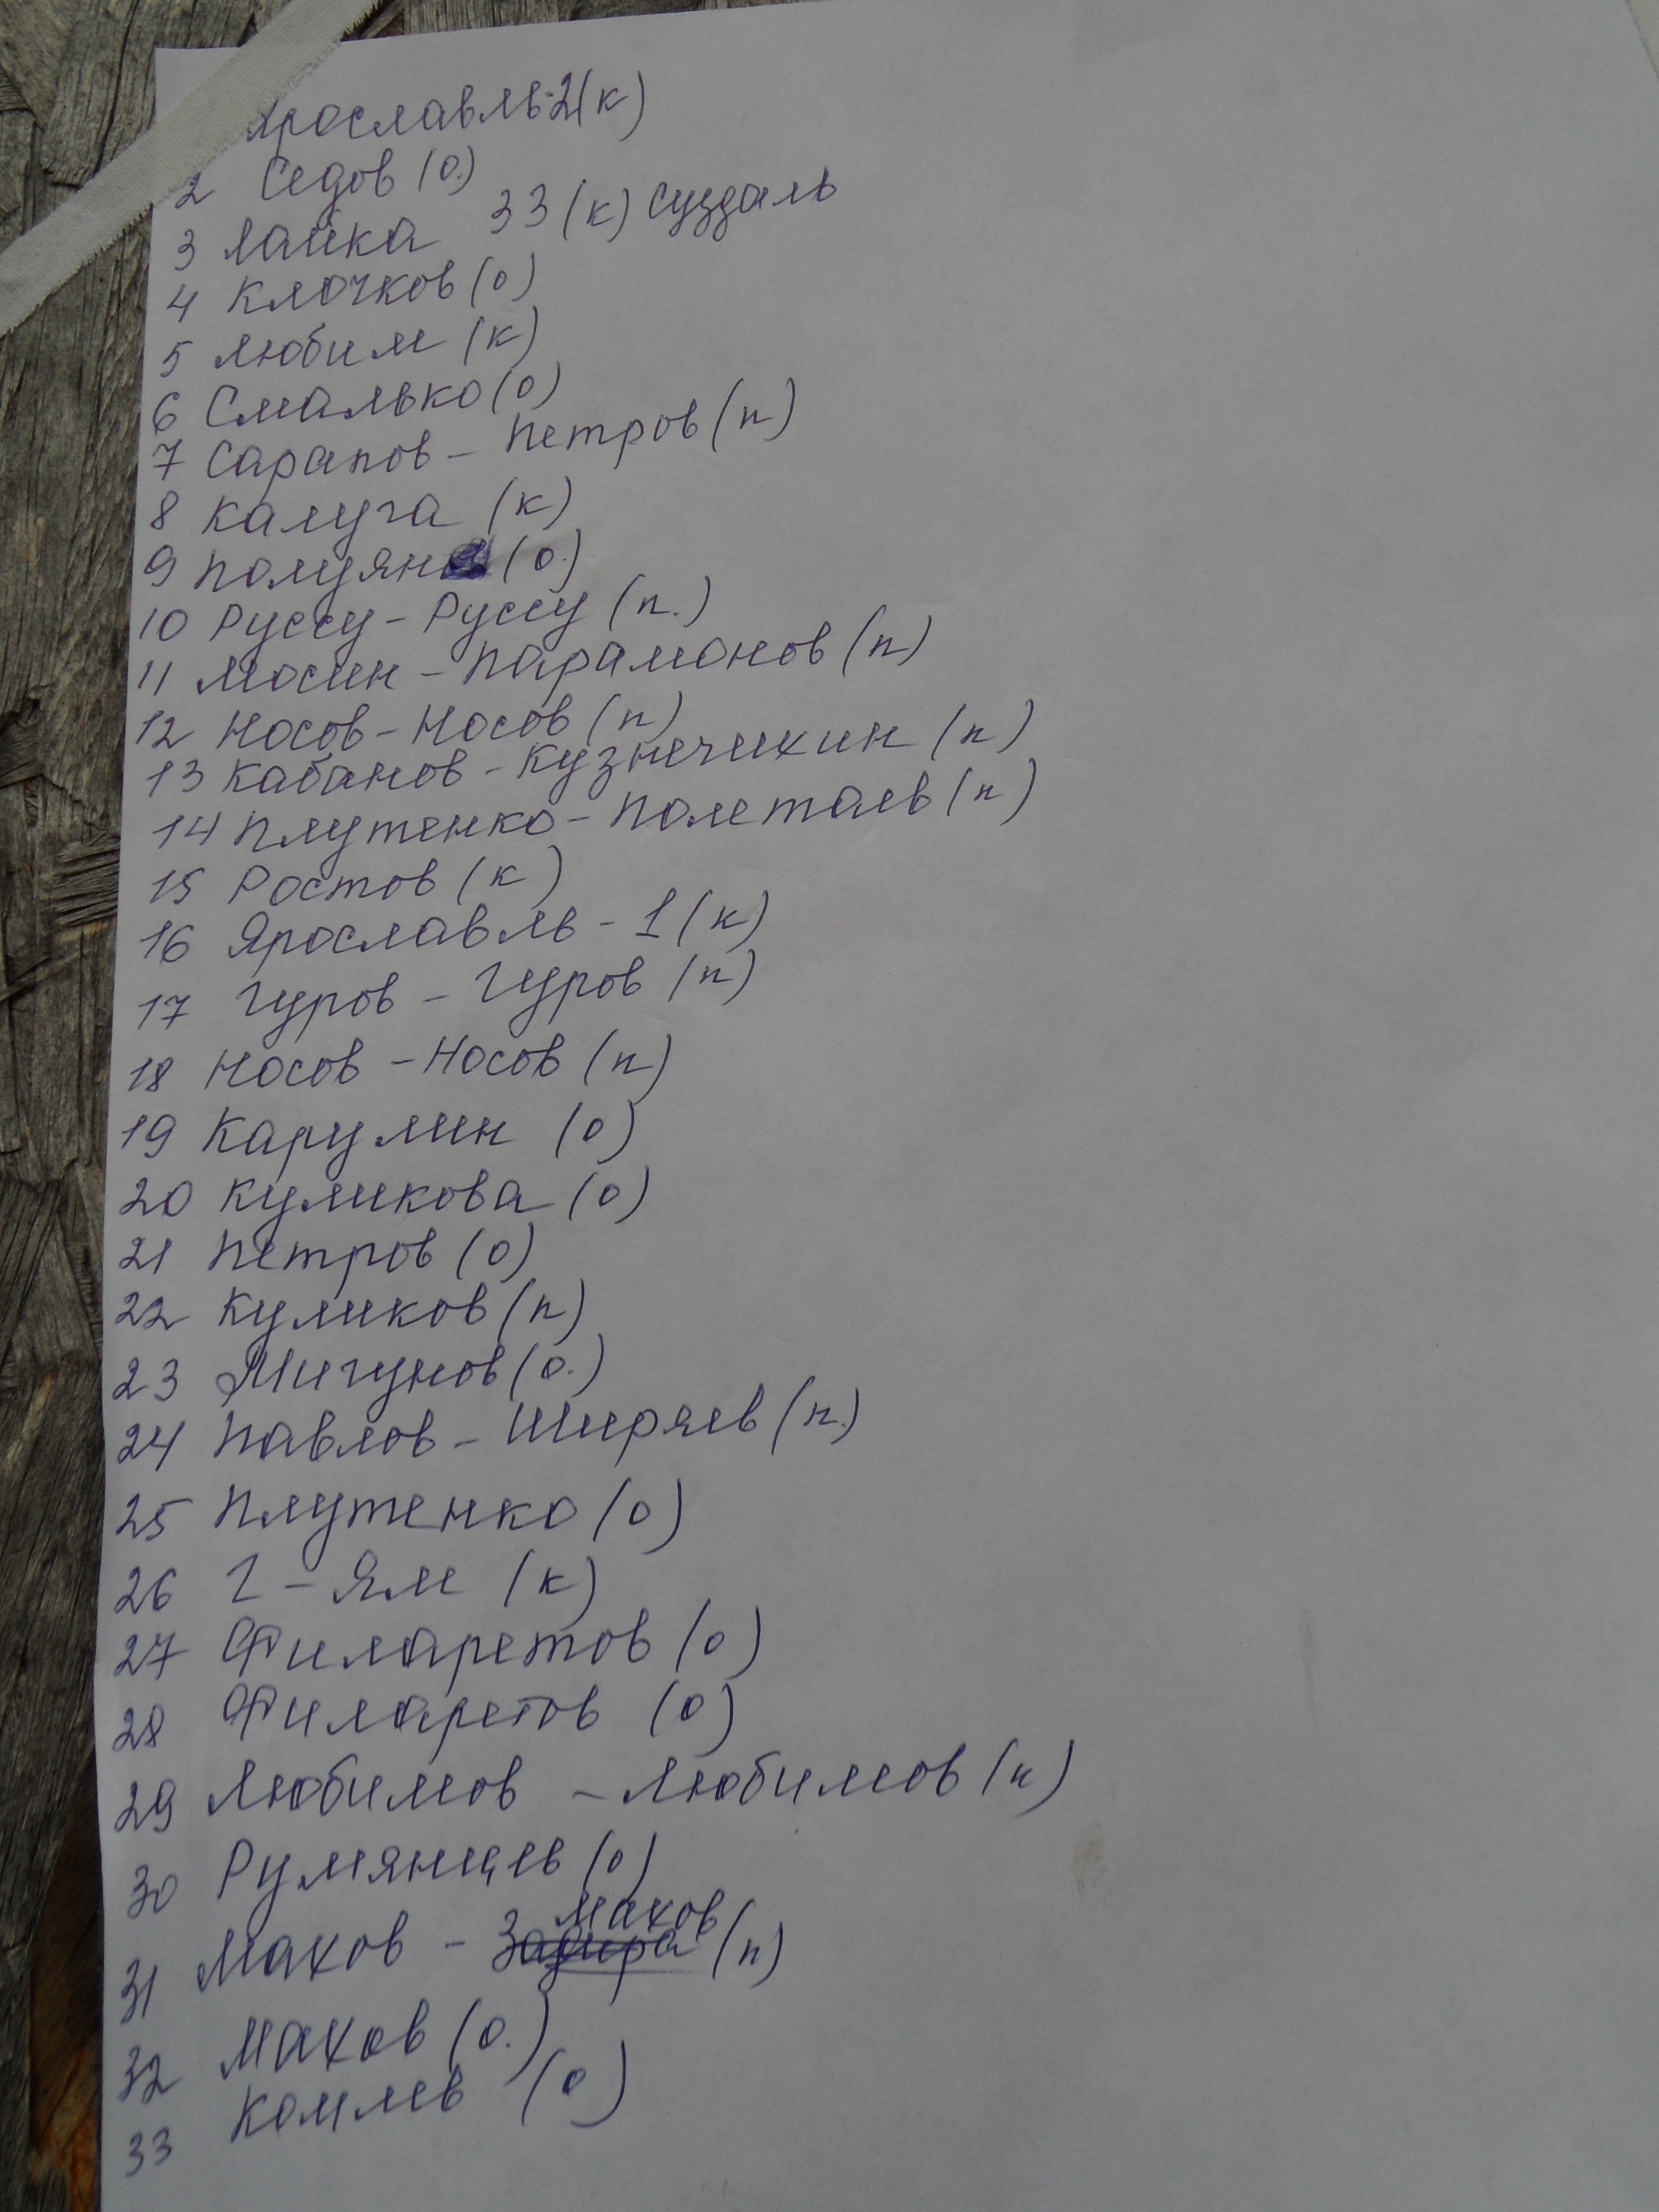 Ярославль-2(к)
2 Седов (о.)
3 Лайка 33 (к) Суздаль
4 Клочков (о)
5 Любим (к)
6 Смалько (о)
7 Сарапов - Петров (п)
8 Калуга (к)
9 Полуян (о.)
10 Руссу - Руссу (п.)
11 Мосин - Парамонов (п)
12 Носов - Носов (п)
13 Кабанов - Кузнечихин (п)
14 Плутенко - Полетаев (п)
15 Ростов (к)
16 Ярославль - 1 (к)
17 Гуров - Гуров (п)
18 Носов - Носов (п)
19 Карулин (о)
20 Куликова (о)
21 Петров (о)
22 Куликов (п)
23 Мигунов (о.)
24 Павлов - Ширяев (п.)
25 Плутенко (о)
26 Г - Ям (к)
27 Филаретов (о)
28 Филаретов (о)
29 Любимов - Любимов (п)
30 Румянцев (о)
31 Махов - Махов (п)
32 Махов (о.)
33 Комлев (о)